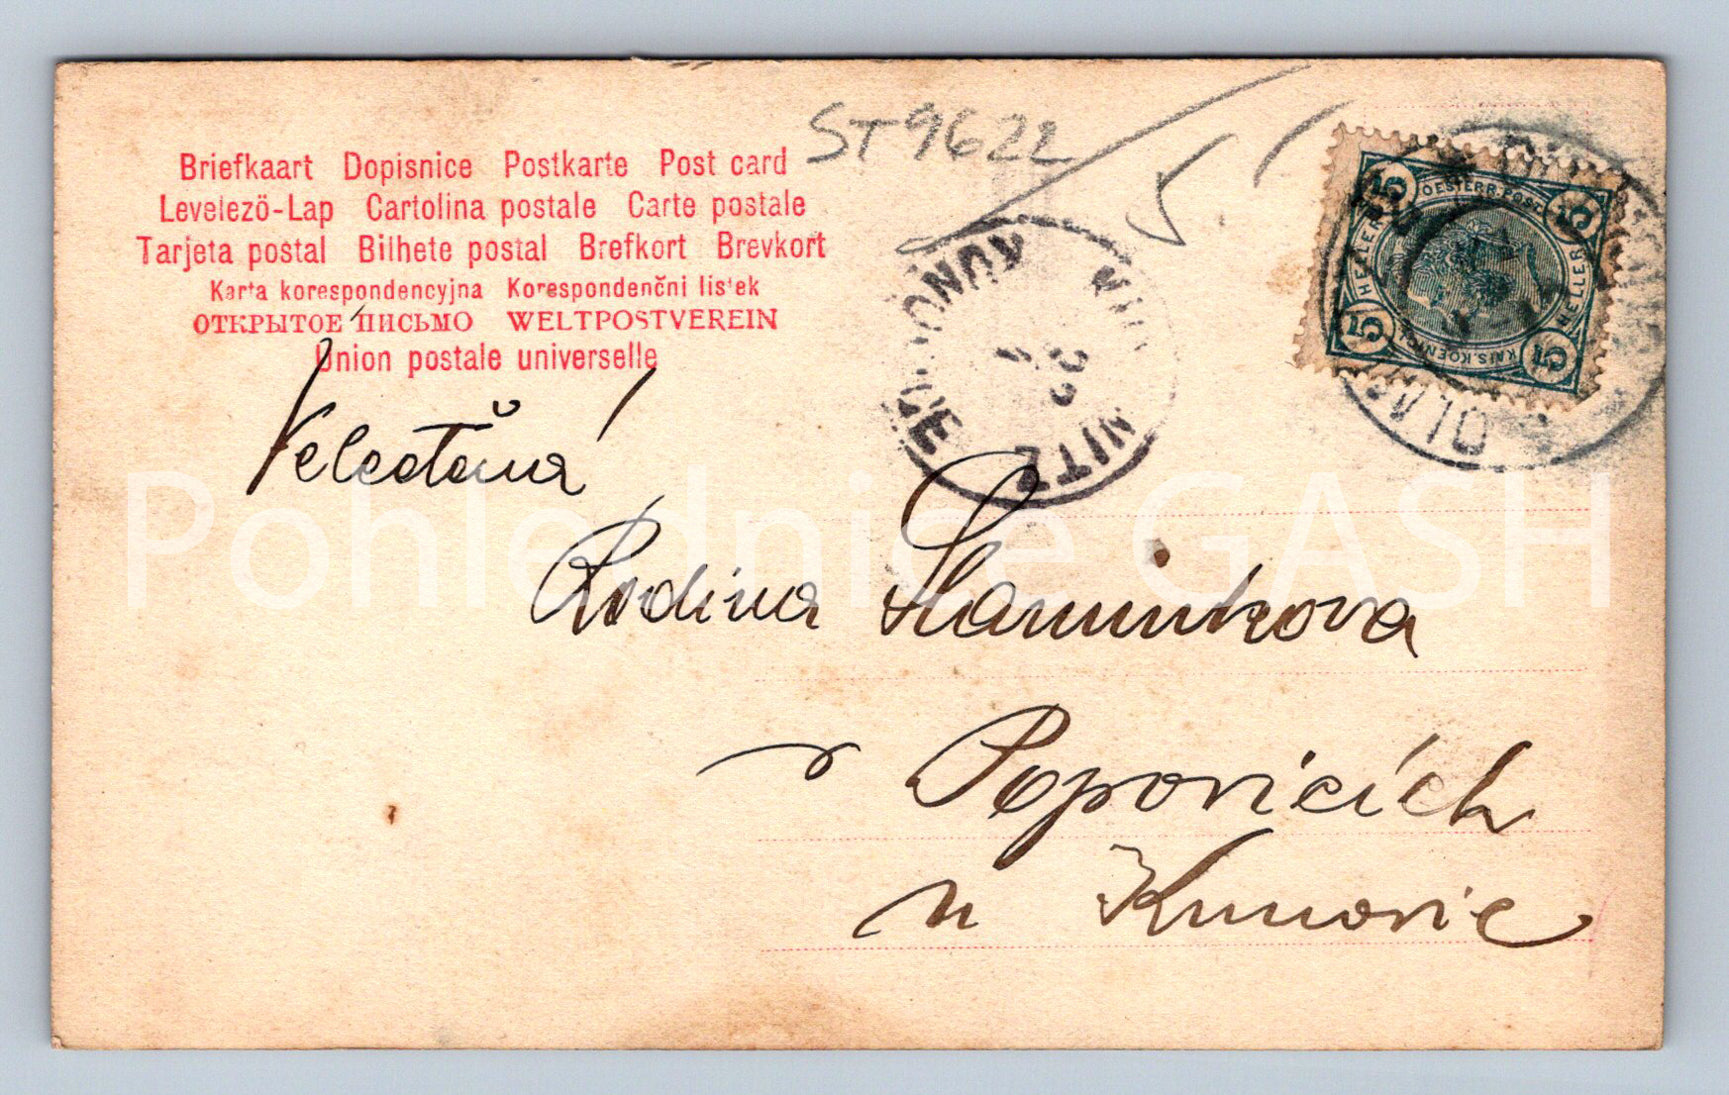 ST9622
5
Briefkaart Dopisnice Postkarte Post card
Levelezö-Lap Cartolina postale Carte postale
Tarjeta postal Bilhete postal Brefkort Brevkort
Karta korespondencyjna Korespondenčni lis'ek
ОТКРЫТОЕ ПИСЬМО WELTPOSTVEREIN
Union postale universelle
5 OESTERR. POST. 5
HELLER HELLER
5 KAIS. KOENIGL. 5
Velectěná
Rodina
v Popovicích
u Kunovic
Pohlednice GASH